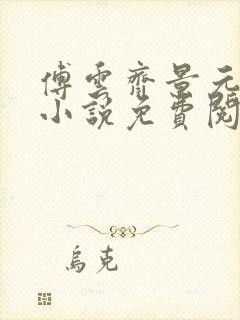 傅雲齊景元
小說免費閱
烏克